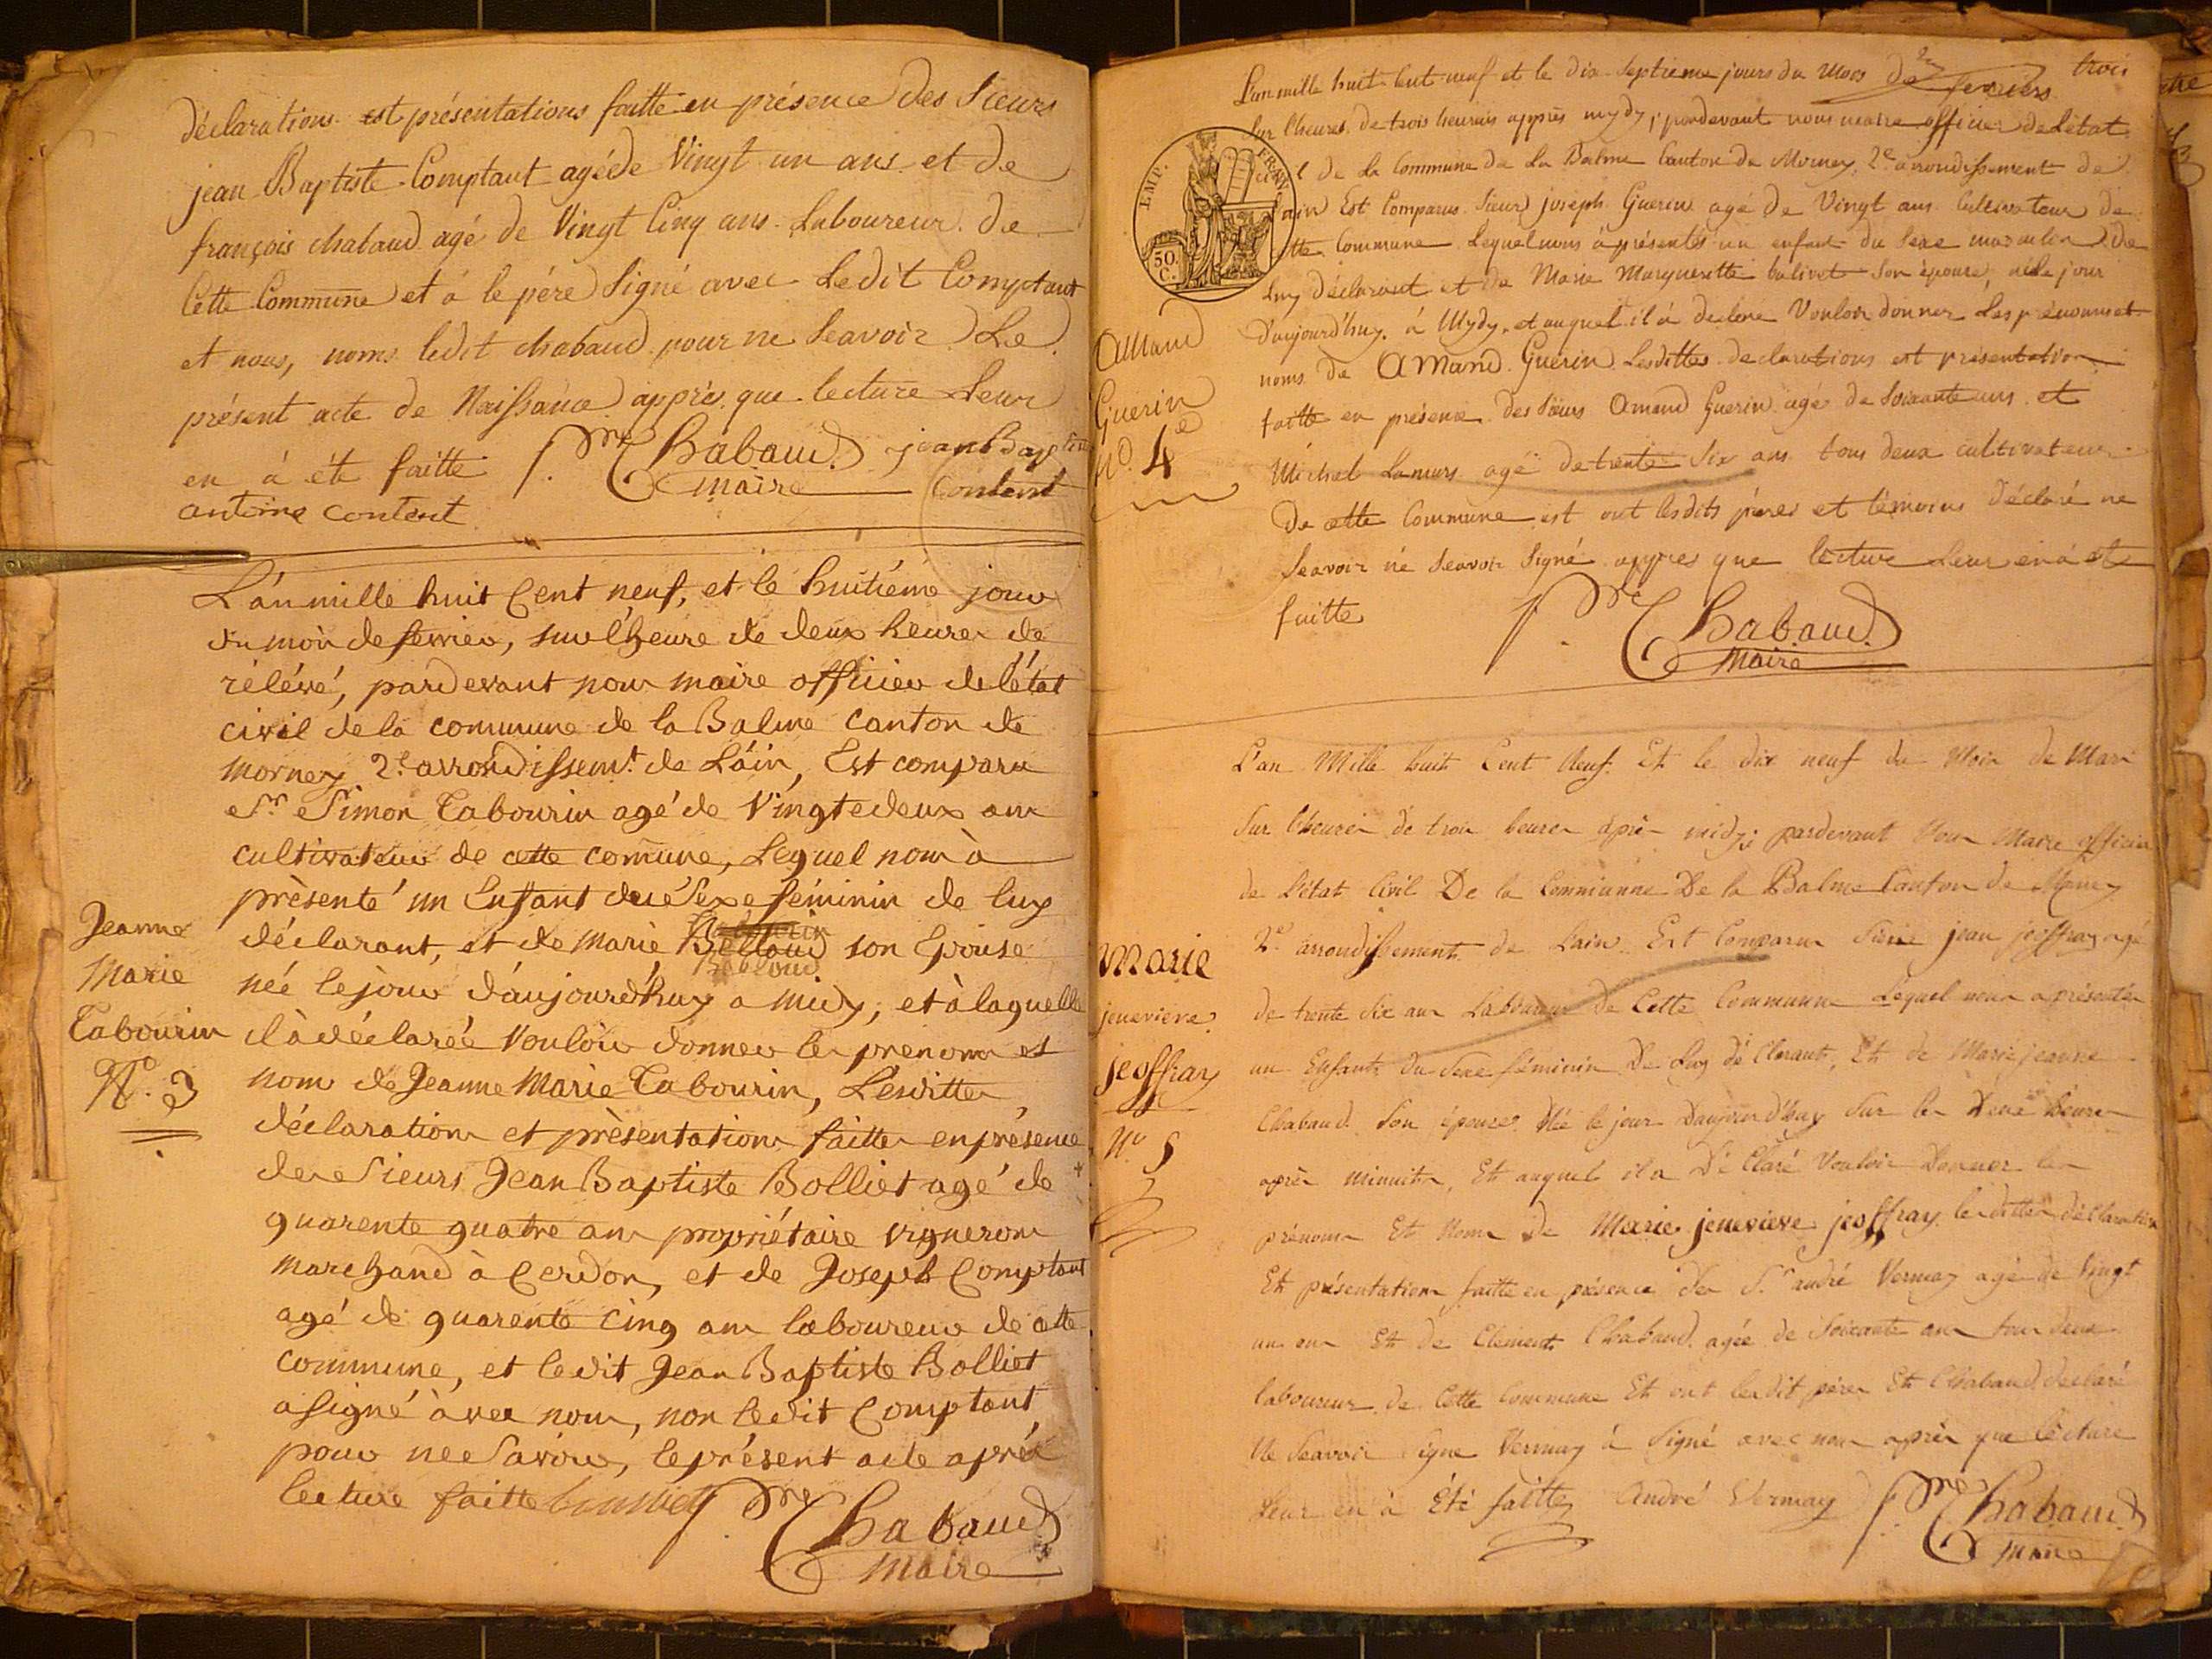 déclarations est présentations faitte en présence des Sieurs
jean Baptiste Comptant agé de Vingt un ans et de
françois chabaud agé de Vingt Cinq ans Laboureur de
Cette Commune et à le père Signé avec Ledit Comptant
et nous, noms ledit chabaud pour ne Seavoir Le
présent acte de Naissance apprès que lecture Leur
en à éte faitte Chabaud jean Baptiste
maire Content
antoine Content
L'an mille huit Cent neuf, et le huitième jour
du mois de fevrier, sur l'heure de deux heures de
rélévé, pardevant nous maire officier de l'état
civil de la commune de la Balme canton de
mornay 2e arrondissemt de L'áin, Est comparu
Sr Simon Tabourin agé de Vingtedeux ans
cultivateur de cette comune, Lequel nous à
prèsenté un Enfant du Sexe féminin de luy
déclarant, et de Marie son Epouse
née le jour d'aujourd'huy a midy, et à laquelle
il à déclaréé Vouloir donner les prenoms et
nom de Jeanne Marie Tabourin, Lesdittes
déclarations et prèsentations faittes en présence
des Sieurs Jean Baptiste Bolliet agé de
quarente quatre ans propriétaire vigneron
marchand à Cerdon, et de Joseph Comptant
agé de quarente cinq ans laboureur de cette
commune, et ledit Jean Baptiste Bolliet
a signé àvec nous, non ledit Comptant
pour ne Savoir, le présent acte aprés
lecture faitte Chabaud
maire
Jeanne
Marie
Tabourin
No. 3
trois
L'an mille huit Cent neuf et le dix Septieme jours du Mois de fevriers
Sur l'heures de trois heures apprès mydy, pardevant nous maire officier de L'état
l de La Commune de La Balme Canton de Mornay, 2e arrondissement de
EMP. FRAN.
50.
C.
ain Est Comparus Sieur joseph Guerin agé de Vingt ans Cultivateur de
tte Commune Lequel nous à présentés un enfant du Sexe masculin de
Luy déclarant et de Marie Margueritte Son épouse, né le jour
D'aujourd'huy à Mydy, et auquel il à declare Vouloir donner Les prénoms et
noms de Amand Guerin Lesdittes declarations est présentation
faitte en présence des Sieurs Amand Guerin agé de Soixante ans et
Michel agé de trente Six ans tous deux cultivateur
De cette Commune est ont lesdits pères et témoins déclaré ne
Seavoir né Seavoir Signé appres que lecture Leur en à été
faitte
Chabaud
Maire
Amand
Guerin
No. 4e
L'an Mille huit Cent Neuf Et le dix neuf du Mois de Mars
Sur l'heures de trois heures après midy; pardevant Nous Maire officier
de L'état Civil De la Commune De la Balme Canton de Mornay
2e arrondissement de Lain Est Comparus Sieur jean jeoffray agé
de trente Six ans Laboureur de Cette Commune Lequel nous a présentés
un Enfant du Sexe féminin De Luy dé Clarant, Et de Marie jeanne
Chabaud Son épouse Née le jour Daujourd'huy Sur les Deux heures
après minuit, Et auquel il a Dé Claré Vouloir Donner les
prénoms Et Noms de Marie jenevieve jeoffray lesdittes déclaration
Et présentations faitte en présence des Sr andré Vermay agé de Vingt
un ans Et de Clément Chabaud agée de Soixante ans tous deux
laboureur de Cette Commune Et ont lesdit père Et Chabaud déclaré
Ne Seavoir Signe Vermay à Signé avec nous après que lecture
Leur en à Été faitte André Vermay Chabaud
Maire
Marie
jenevieve
jeoffray
No 5